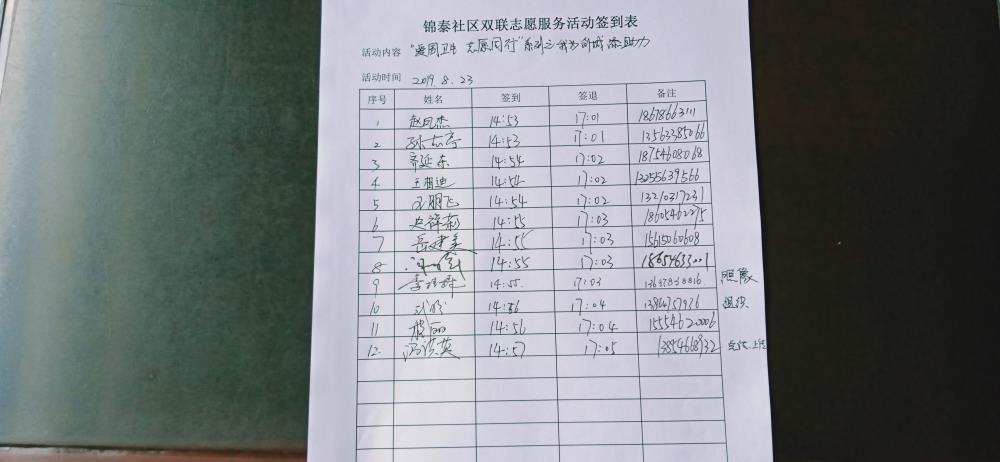 锦泰社区双联志愿服务活动签到表
活动内容 "爱国卫生 志愿同行"系列之我为创城添助力
活动时间 2019.8.23
序号 姓名 签到 签退 备注
1 赵凤杰 14:53 17:01 18678663111
2 孙志亭 14:53 17:01 13563385066
3 齐延东 14:54 17:02 18754608068
4 王相迪 14:54 17:02 13255639566
5 王鹏飞 14:54 17:02 13210317231
6 14:55 17:03 18605462275
7 岳建美 14:55 17:03 15615060608
8 14:55 17:03 18654633001
9 14:55 17:03
10 14:56 17:04
11 14:56 17:04 15554620006
12 冯洪英 14:57 17:05 13854668932